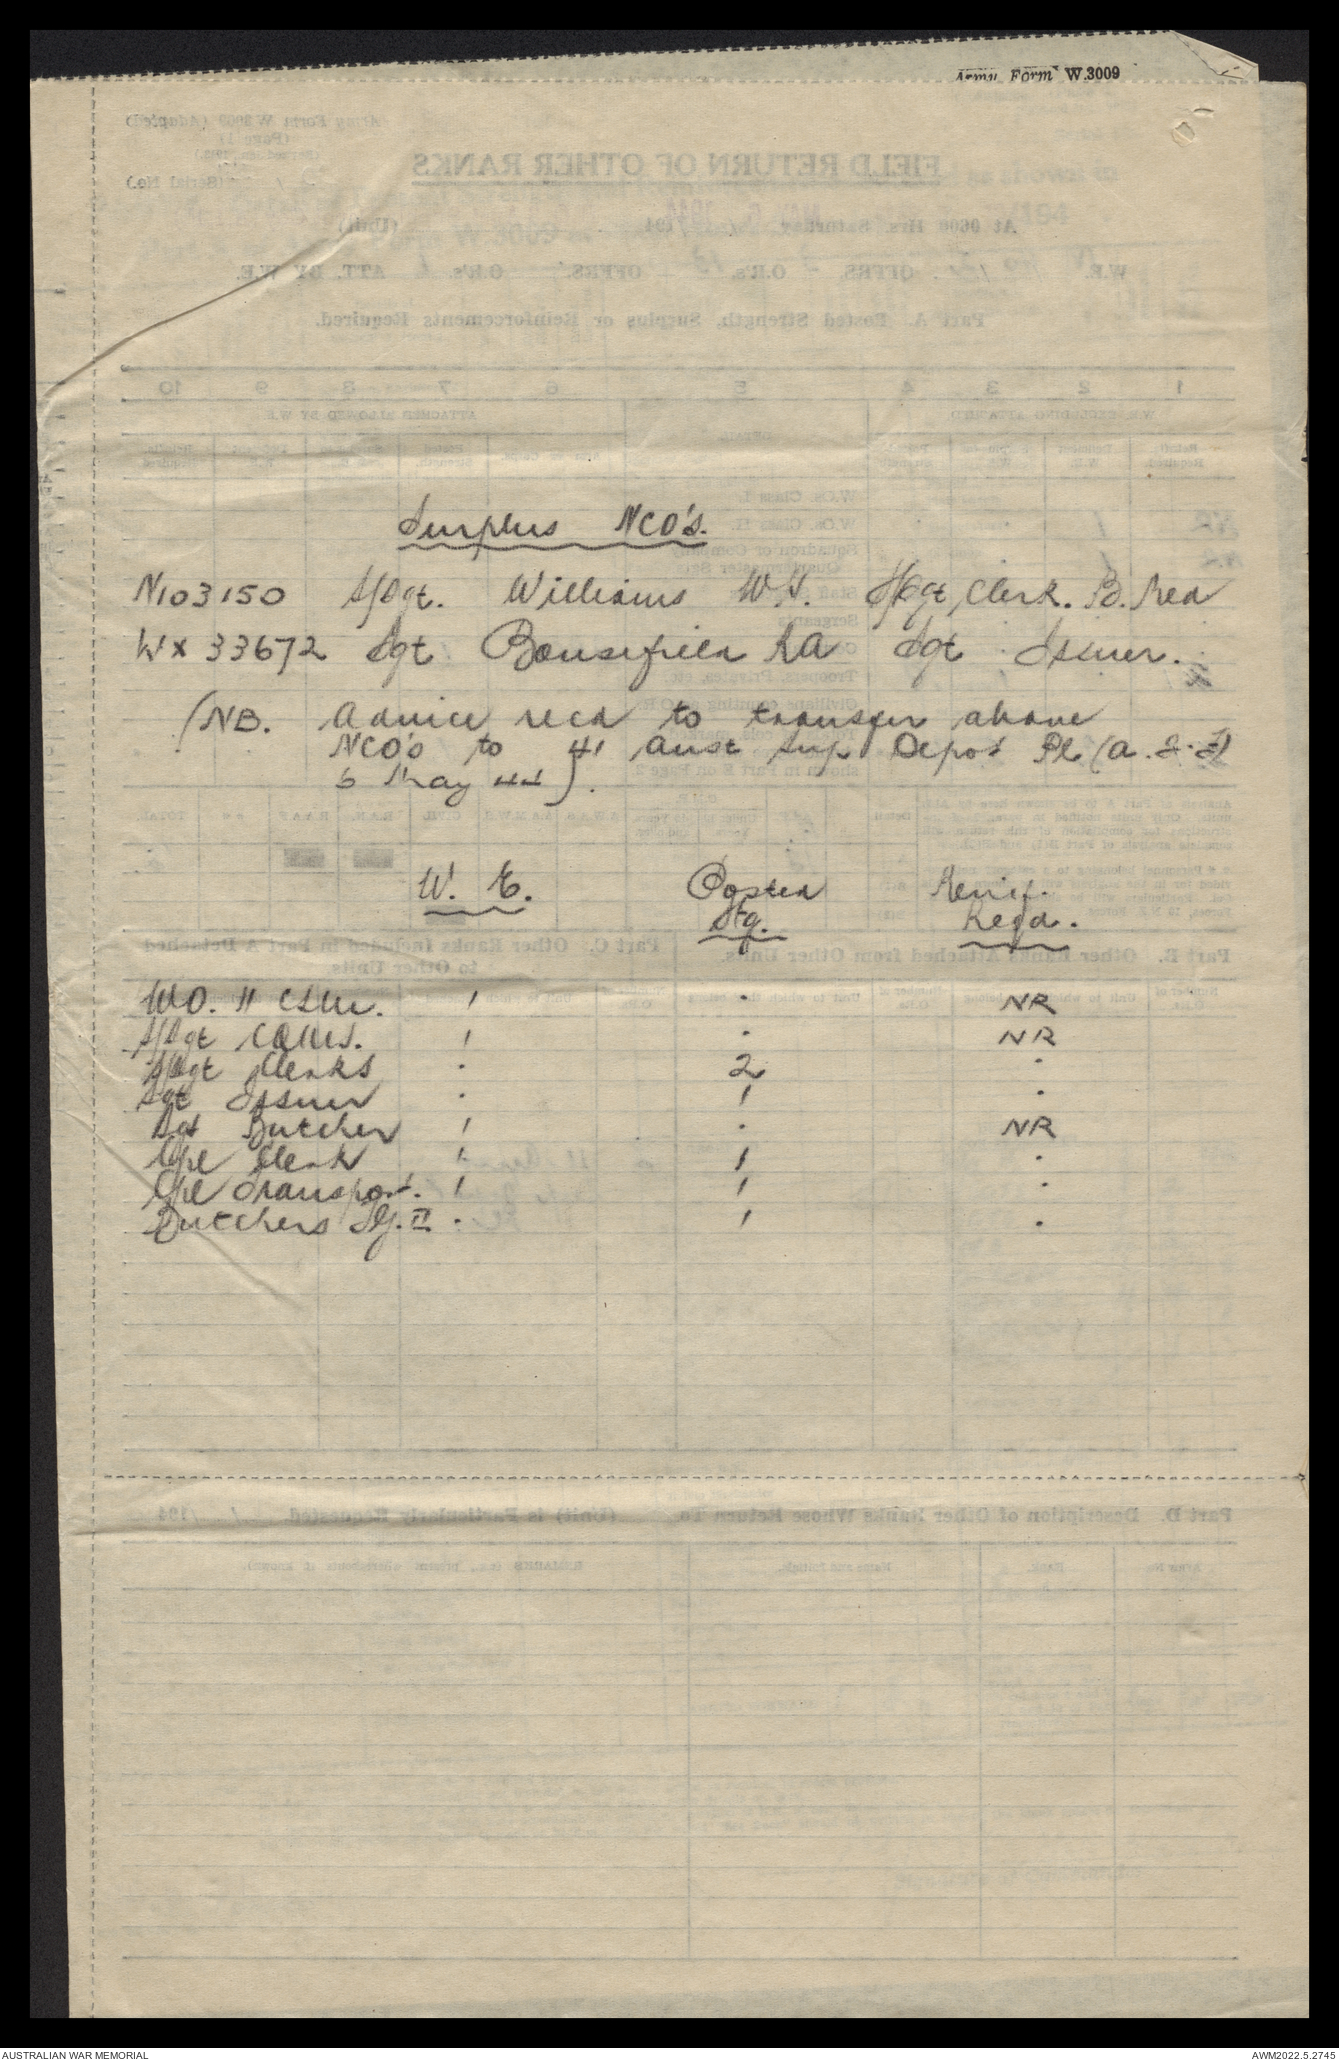 Army Form W.3009
Surplus NCO's.
N103150 S/Sgt. Williams W.J. S/Sgt Clerk. B. Red
WX 33672 Sgt Bousfield RA Sgt Issuer.
(NB. Advice recd to transfer above
NCO's to 41 Aust Sup Depot Pl (A.I.F)
6 May 44).
W. E. Posted Reinf.
Stg. Reqd.
WO. II CSM. 1 . NR
S/Sgt CQMS. 1 . NR
S/Sgt Clerks . 2 .
Sgt Issuer . 1 .
Sgt Butcher 1 . NR
Cpl Clerk 1 1 .
Cpl Transport. 1 1 .
Butchers Gp. II . 1 .
AUSTRALIAN WAR MEMORIAL
AWM2022.5.2745